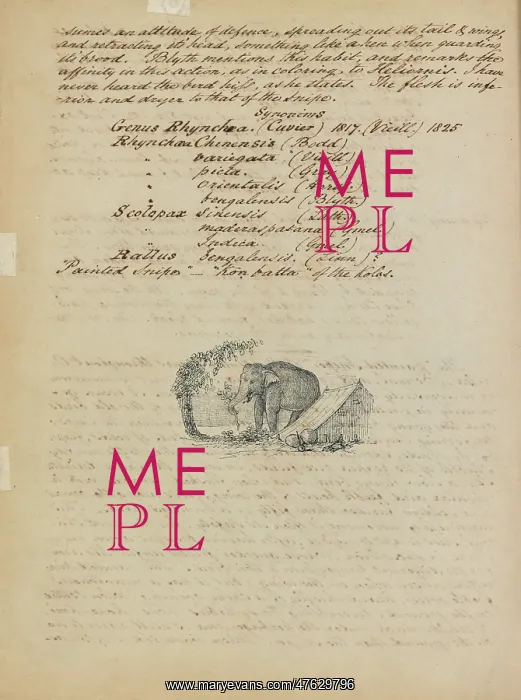 sumes an attitude of defence, spreading out its tail & wings,
and retracting its head, something like a hen when guarding
its brood. Blyth mentions this habit, and remarks the
affinity in this action, as in coloring, to Heliornis. I have
never heard the bird hiss, as he states. The flesh is infe-
rior and dryer to that of the Snipe.
Synonims
Genus Rhynchæa. (Cuvier) 1817. (Vieill.) 1825
Rhynchæa Chinensis (Bodd)
" variegata (Vieill.)
" picta. (Gray)
" orientalis (Horsf.)
" bengalensis (Blyth.)
Scolopax Sinensis (Lath.)
" maderaspatana (Gmel)
" Indica. (Gmel)
Rallus bengalensis. (Linn)?
"Painted Snipe" — "Kon batta" of the Kolas.
ME
PL
ME
PL
www.maryevans.com/47629796